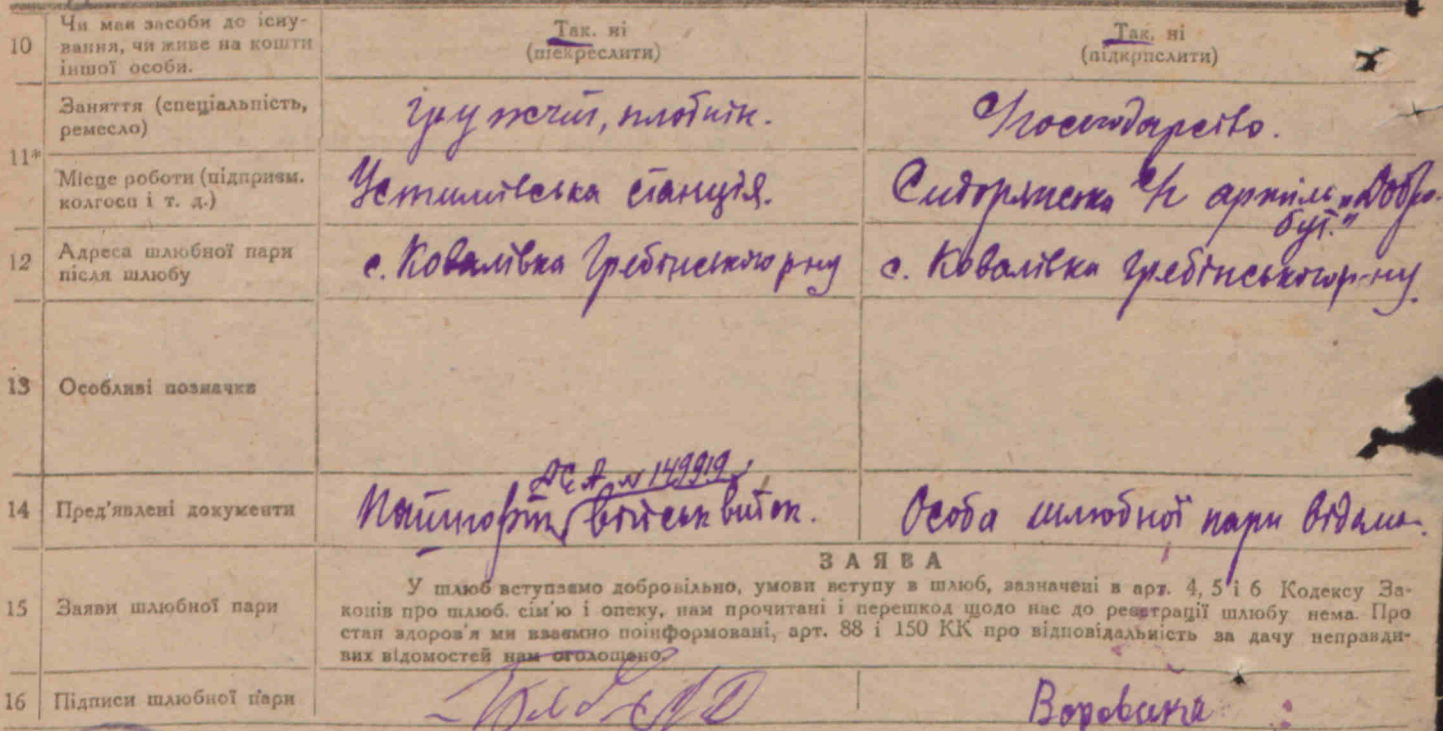 10 Чи має засоби до існування, чи живе на кошти іншої особи. Так. ні (підкреслити) Так, ні (підкрислити)
11* Заняття (спеціальність, ремесло) плотнік. Господарство.
Місце роботи (підприєм. колгосп і т. д.) станція. артіль „Добробут."
12 Адреса шлюбної пари після шлюбу с. Ковалівка Гребінського р-ну с. Ковалівка Гребінського р-ну.
13 Особливі позначки
№ 149919
14 Пред'явлені документи Пашпорт, військ виток. Особа шлюбної пари відома.
ЗАЯВА
15 Заяви шлюбної пари У шлюб вступаємо добровільно, умови вступу в шлюб, зазначені в арт. 4, 5 і 6 Кодексу За-
конів про шлюб. сім'ю і опеку, нам прочитані і перешкод щодо нас до реєтрації шлюбу нема. Про
стан здоров'я ми взаємно поінформовані, арт. 88 і 150 КК про відповідальність за дачу неправди-
вих відомостей нам оголошено.
16 Підписи шлюбної пари